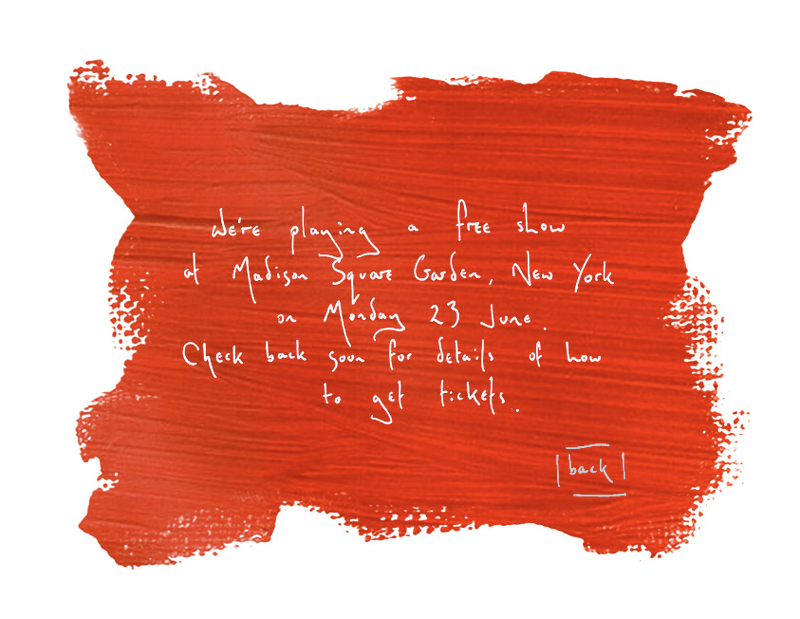 We're playing a free show
at Madison Square Garden, New York
on Monday 23 June.
Check back soon for details of how
to get tickets.
back